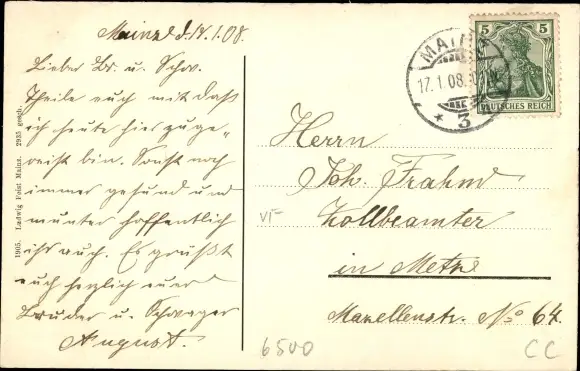 Mainz d. 17.1.08.
Lieber Br. u. Schw.
Theile euch mit daß
ich heute hier zuge-
reist bin. Sonst noch
immer gesund und
munter hoffentlich
ihr auch. Es grüßt
euch herzlich euer
Bruder u. Schwager
August.
1905. Ludwig Feist Mainz. 2935 gesch.
MAINZ
17.1.08.
* 3
5 5
DEUTSCHES REICH
Herrn
Joh. Frahm
Zollbeamter
in Metz
Mazellenstr. No 64.
6500
CC